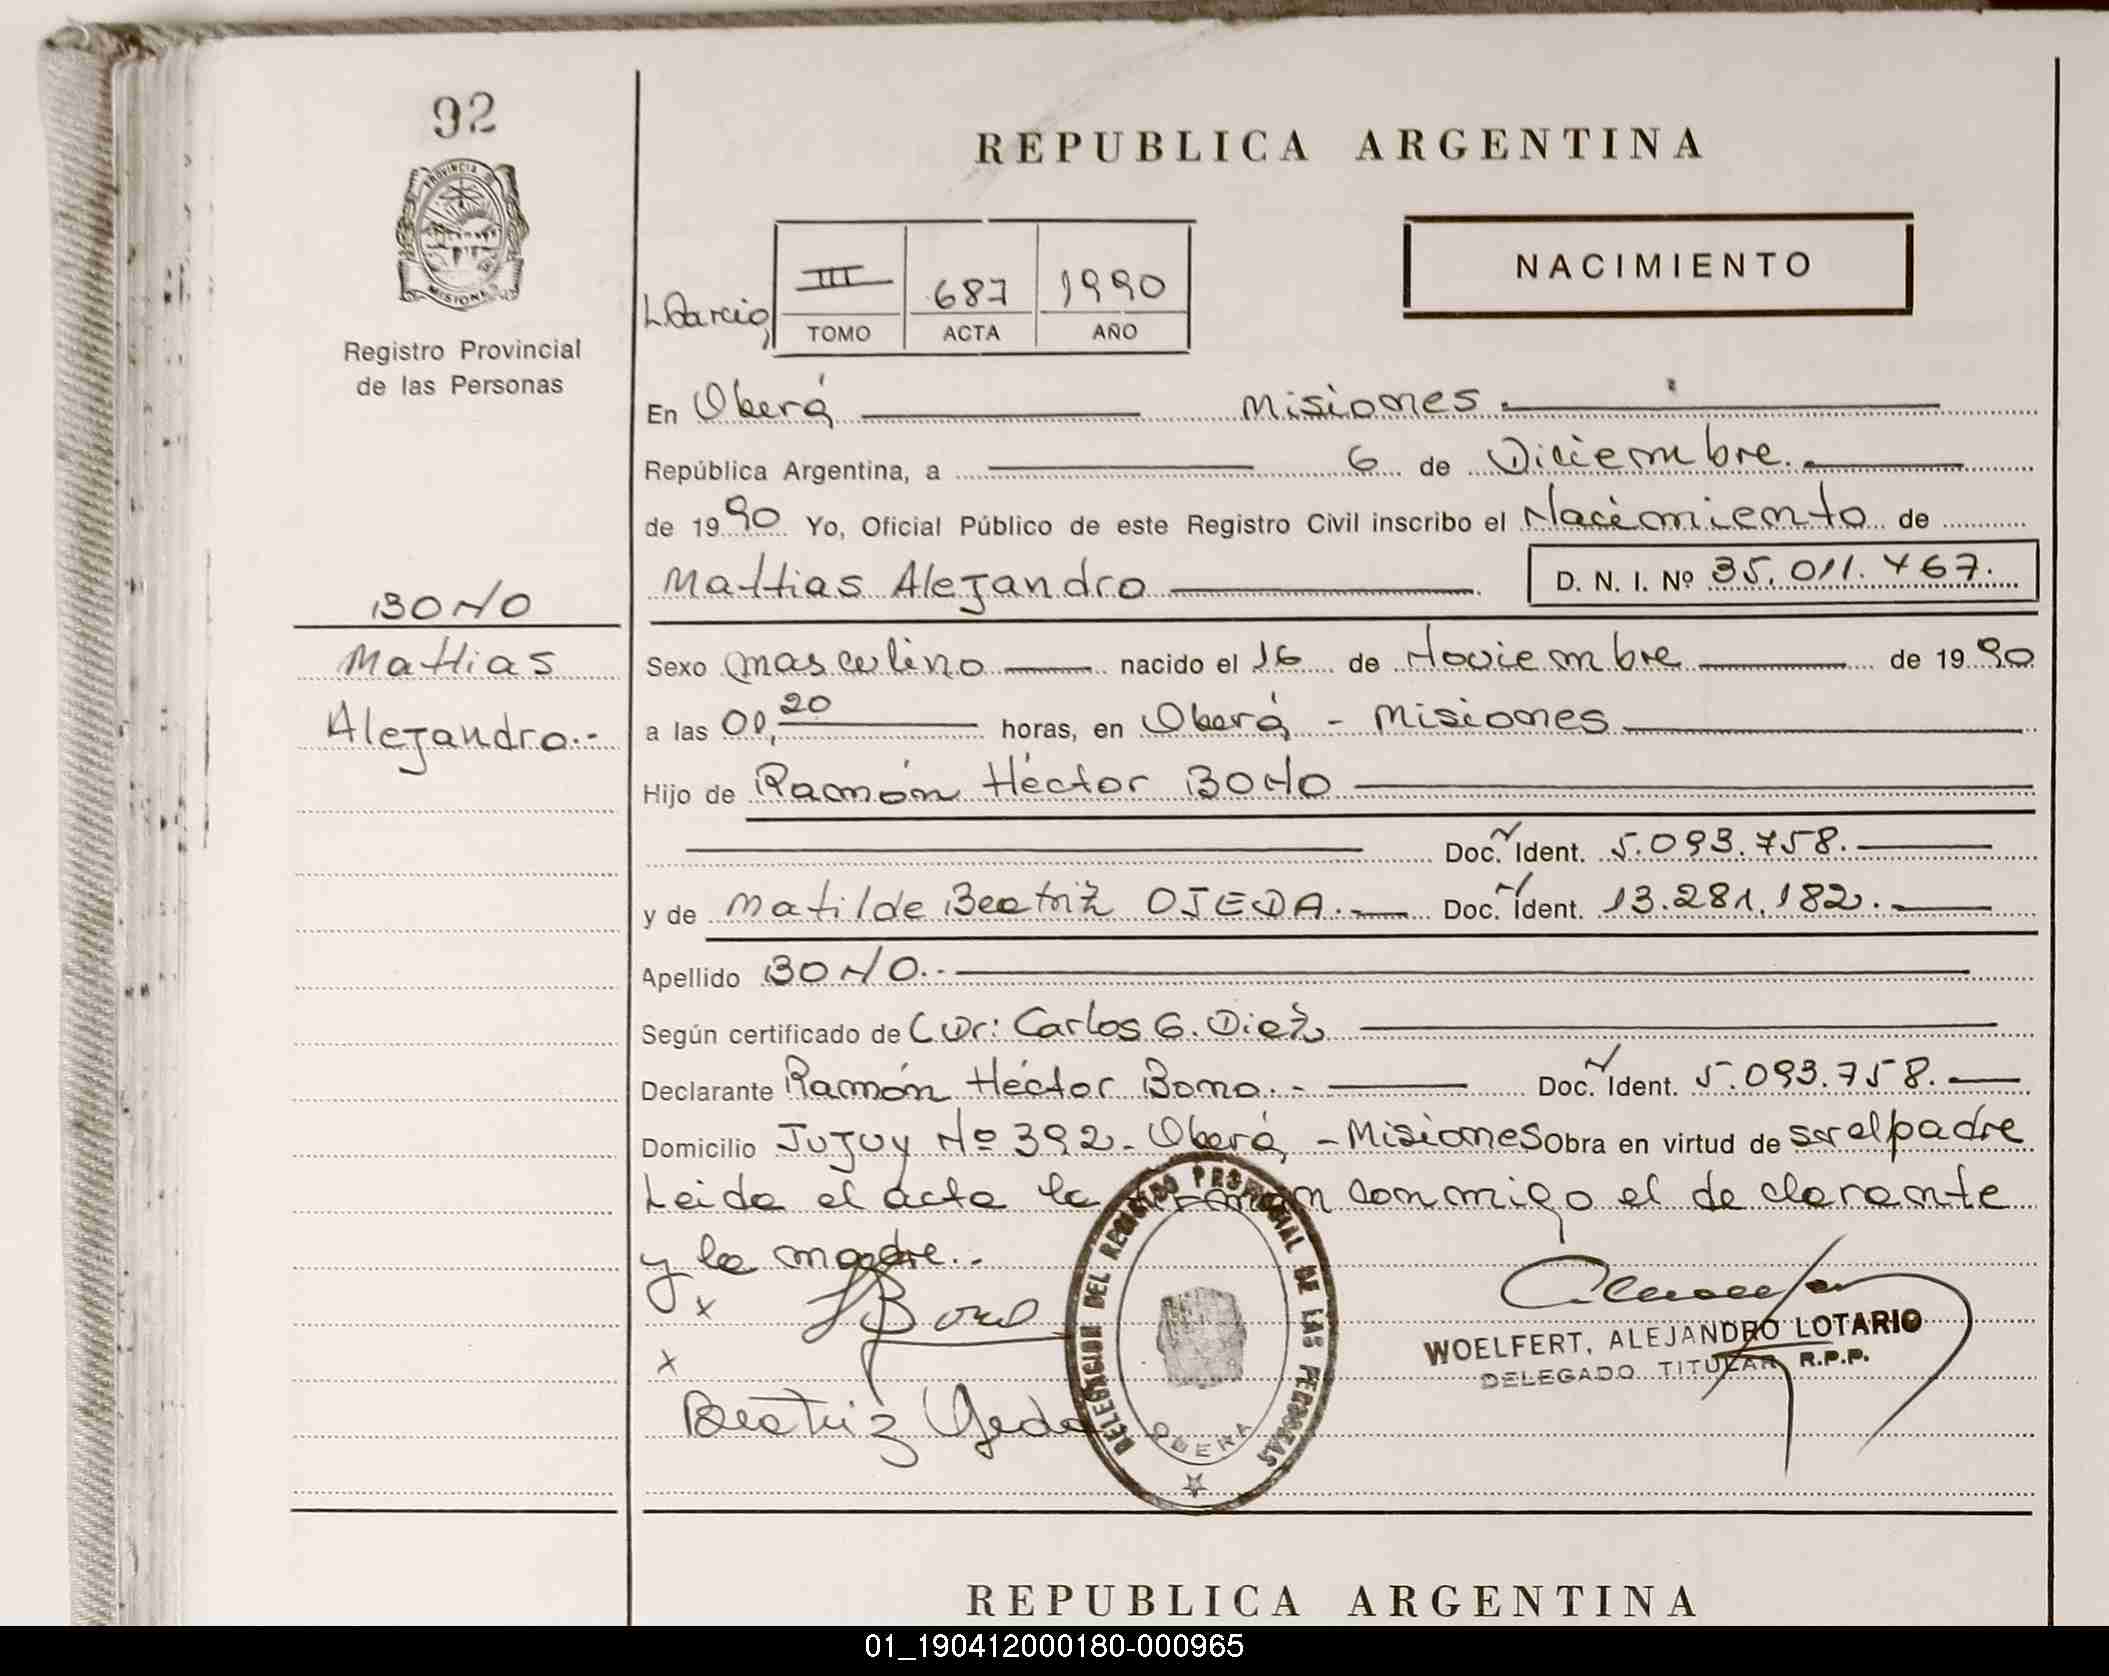 92
PROVINCIA DE
MISIONES
Registro Provincial
de las Personas
REPUBLICA ARGENTINA
NACIMIENTO
III 687 1990
TOMO ACTA AÑO
En Oberá Misiones
República Argentina, a 6 de Diciembre
de 1990 Yo, Oficial Público de este Registro Civil inscribo el Nacimiento de
Mattias Alejandro D. N. I. Nº 35.011.467.
BONO
Mattias
Alejandro.-
Sexo masculino nacido el 16 de Noviembre de 1990
a las 00,20 horas, en Oberá - Misiones
Hijo de Ramón Héctor BONO
Doc. Ident. 5.093.758.
y de Matilde Beatriz OJEDA.- Doc. Ident. 13.281.182.
Apellido BONO.-
Según certificado de Dr: Carlos G. Diez
Declarante Ramón Héctor Bono.- Doc. Ident. 5.093.758.
Domicilio Jujuy Nº 392- Oberá - Misiones Obra en virtud de ser el padre
Leida el acta la firman conmigo el declarante
y la madre.-
x Bono
x
Beatriz Ojeda
DELEGACION DEL REGISTRO PROVINCIAL DE LAS PERSONAS
OBERA
WOELFERT, ALEJANDRO LOTARIO
DELEGADO TITULAR R.P.P.
REPUBLICA ARGENTINA
01_190412000180-000965